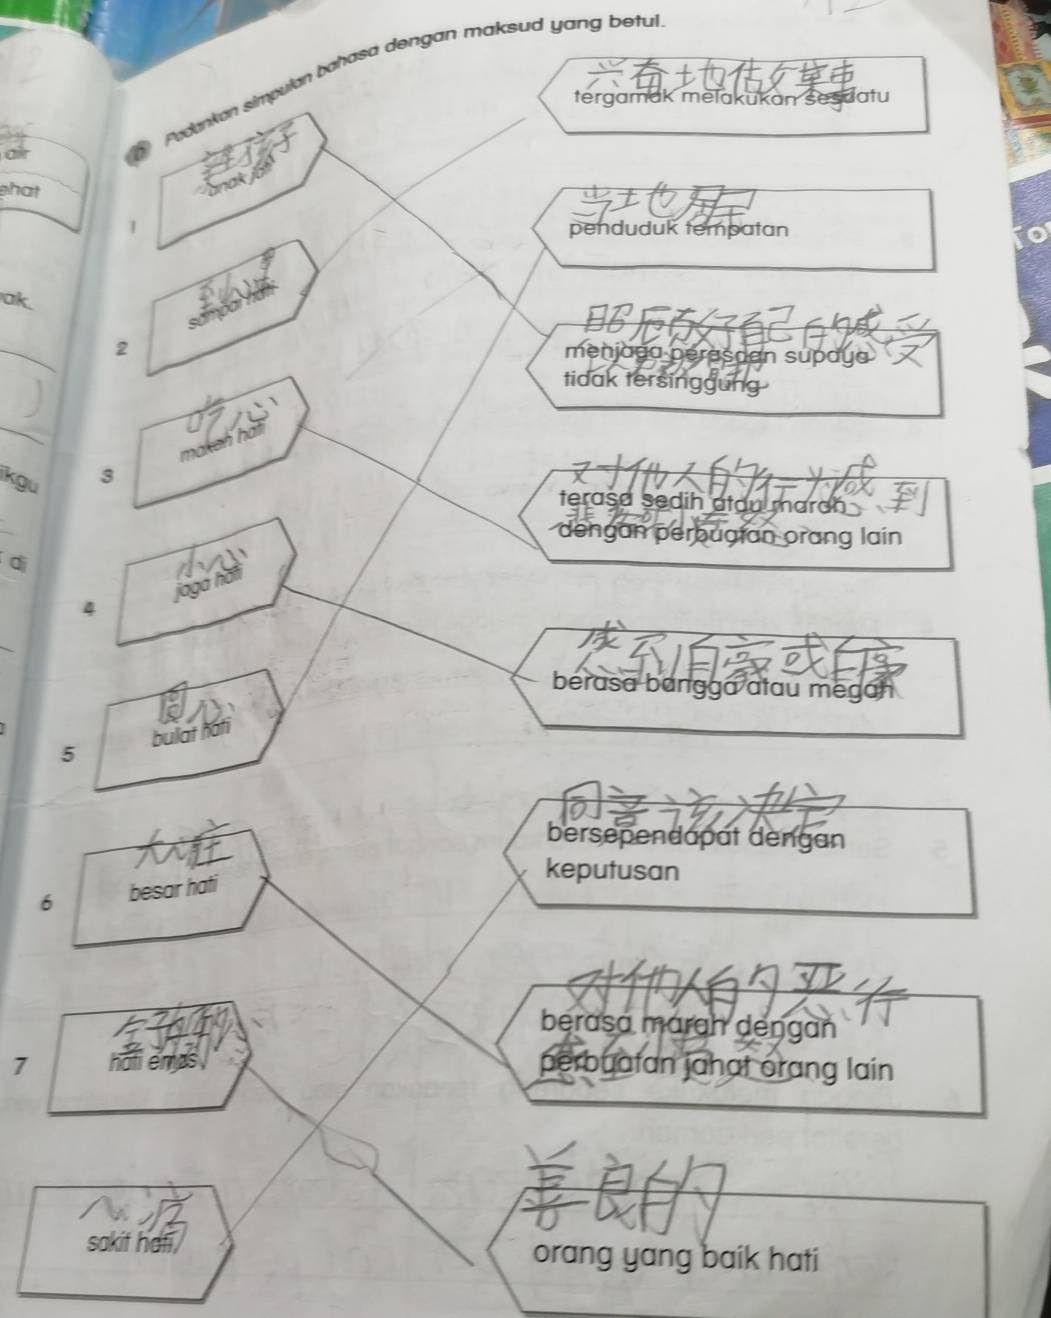 Padankan simpulan bahasa dengan maksud yang betul.
air
ehat
ak.
ikgu
di
1
anak jati
2
sampai hati
吃心
3
makan hati
小心
4
jaga hati
圆心
5
bulat hati
6
besar hati
7
hati emas
心疼
sakit hati
tergamak melakukan sesuatu
penduduk tempatan
照顾好自己的感受
menjaga perasaan supaya
tidak tersinggung
对他人的行为感到
terasa sedih atau marah
dengan perbuatan orang lain
感到自豪或自豪
berasa bangga atau megah
同意该决定
bersependapat dengan
keputusan
对他人的恶行
berasa marah dengan
perbuatan jahat orang lain
善良的
orang yang baik hati